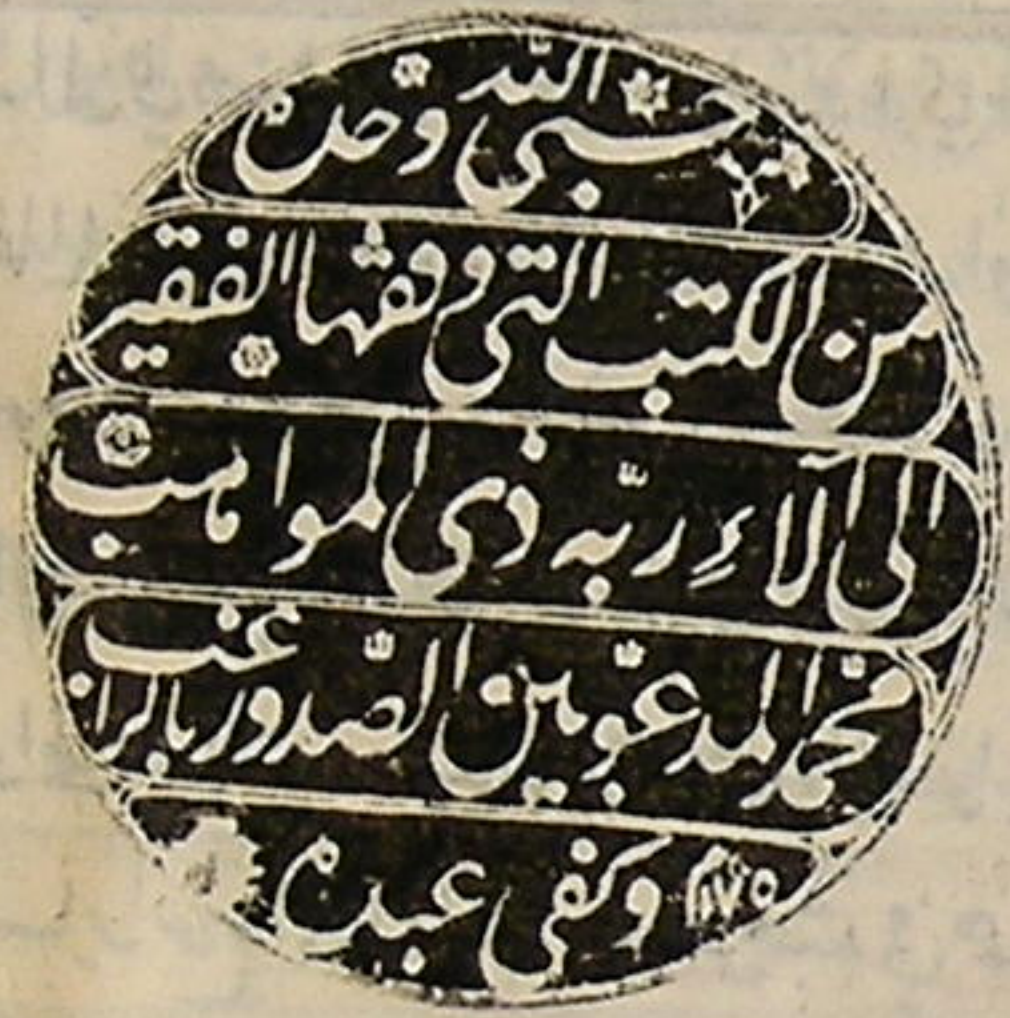 حسبى الله وحده
من الكتب التى وقفها الفقير
الى آلاءِ ربّه ذى المواهب
محمّد المدعوّ بين الصّدور بالراغب
وكفى عبده